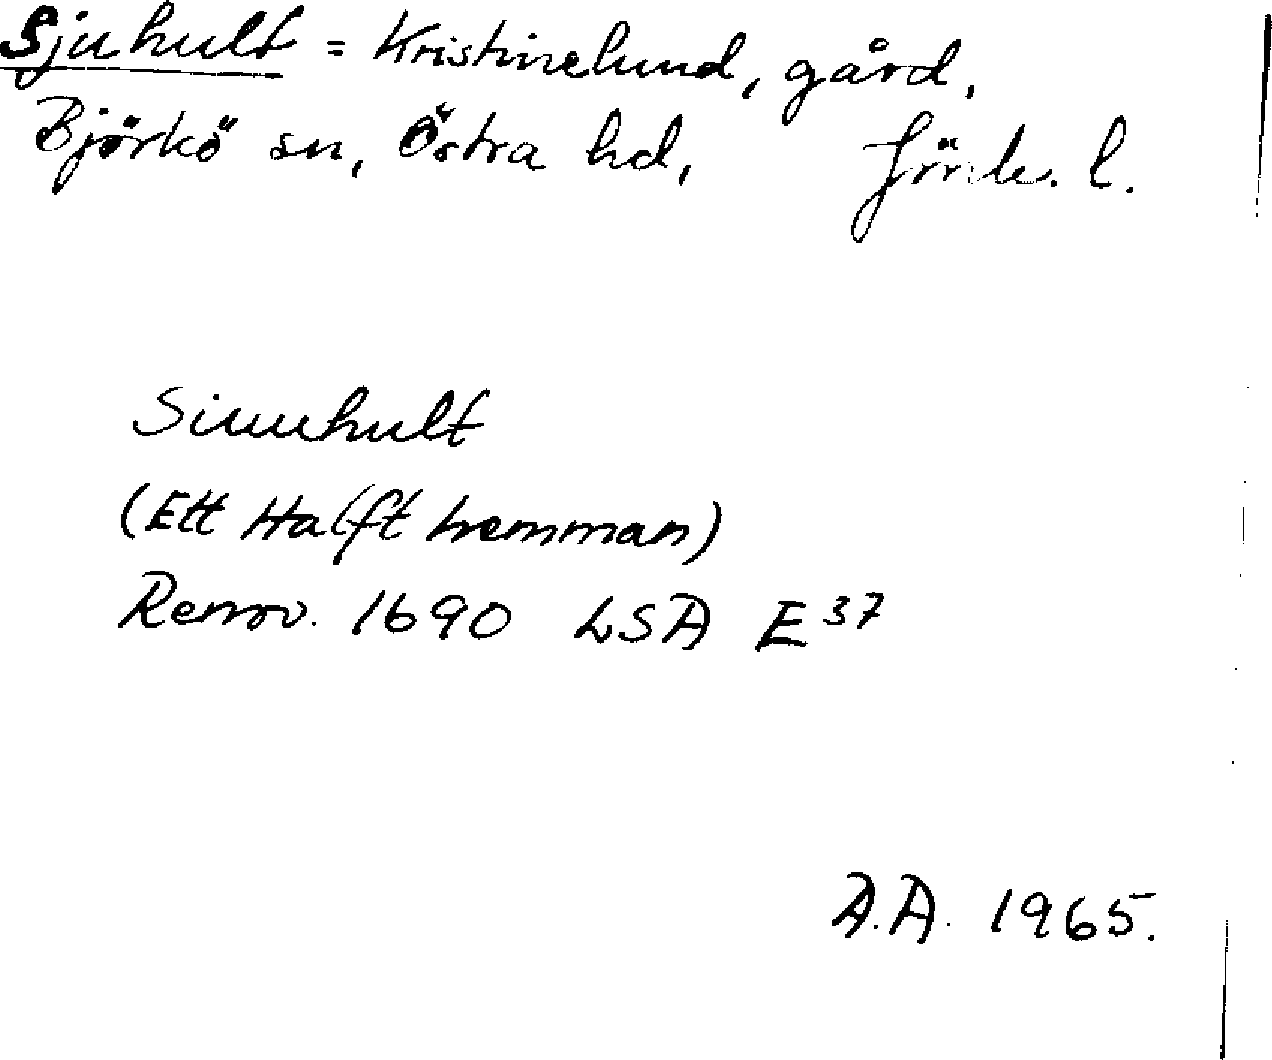 Sjuhult = Kristinelund, gård,
Björkö sn, Östra hd, Jönk. l.
Siuuhult
(Ett Halft hemman)
Renov. 1690 LSA E 37
A.A. 1965.